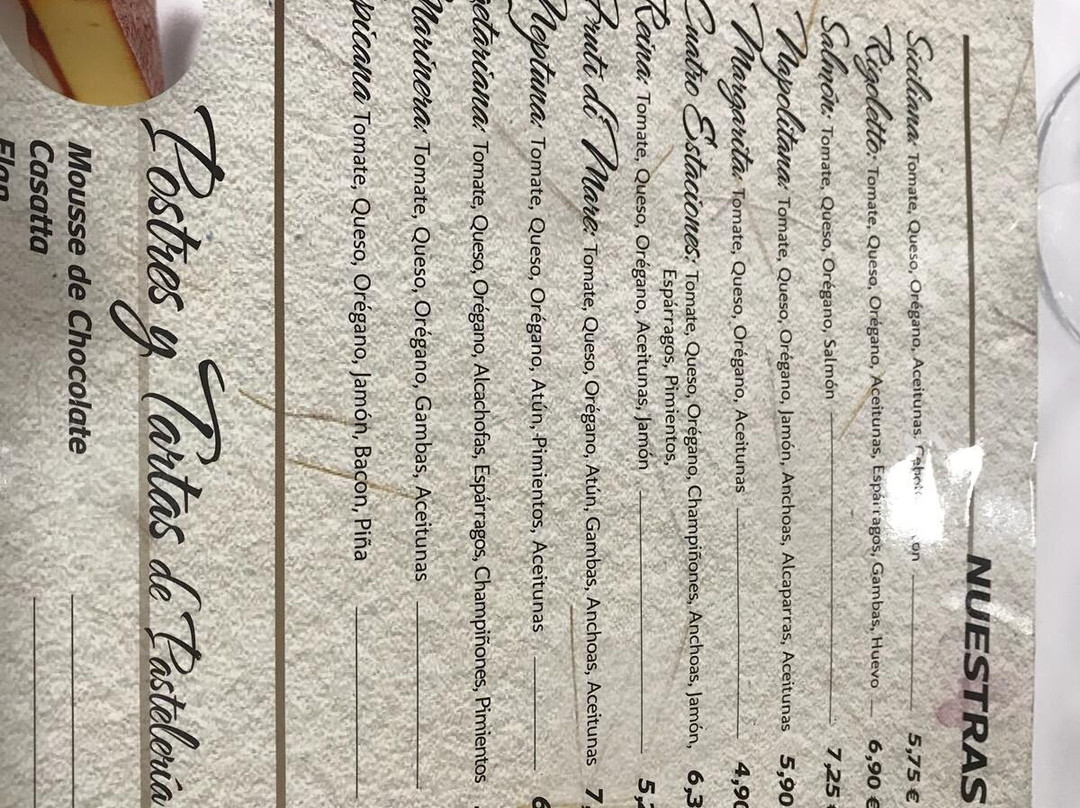 NUESTRAS
Siciliana: Tomate, Queso, Orégano, Aceitunas, 5,75 €
Rigoletto: Tomate, Queso, Orégano, Aceitunas, Espárragos, Gambas, Huevo 6,90 €
Salmón: Tomate, Queso, Orégano, Salmón 7,25 €
Napolitana: Tomate, Queso, Orégano, Jamón, Anchoas, Alcaparras, Aceitunas 5,90
Margarita: Tomate, Queso, Orégano, Aceitunas 4,90
Cuatro Estaciones: Tomate, Queso, Orégano, Champiñones, Anchoas, Jamón, 6,3
Espárragos, Pimientos,
Reina: Tomate, Queso, Orégano, Aceitunas, Jamón 5,
Fruti di Mare: Tomate, Queso, Orégano, Atún, Gambas, Anchoas, Aceitunas 7,
Neptuna: Tomate, Queso, Orégano, Atún, Pimientos, Aceitunas 6
etariana: Tomate, Queso, Orégano, Alcachofas, Espárragos, Champiñones, Pimientos
Marinera: Tomate, Queso, Orégano, Gambas, Aceitunas
picana Tomate, Queso, Orégano, Jamón, Bacon, Piña
Postres y Tartas de Pastelería
Mousse de Chocolate
Casatta
Flan